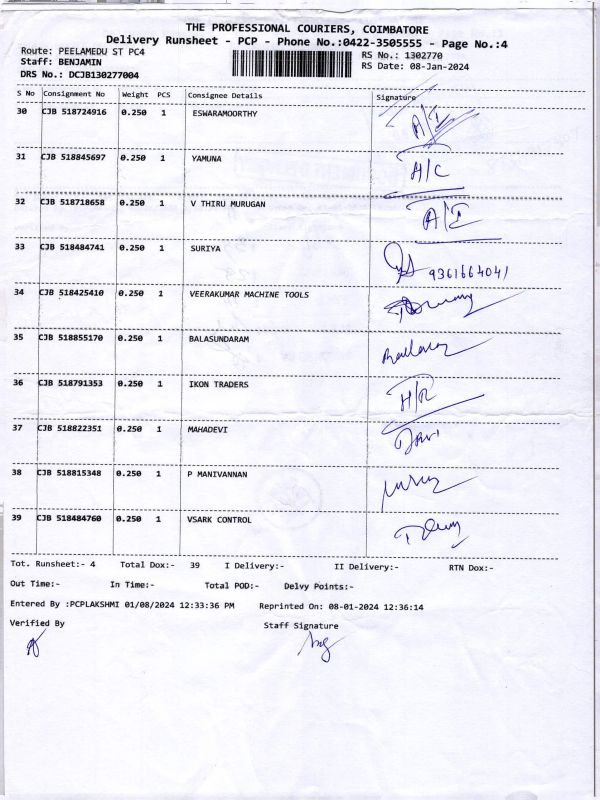 THE PROFESSIONAL COURIERS, COIMBATORE
Delivery Runsheet - PCP - Phone No.:0422-3505555 - Page No.:4
Route: PEELAMEDU ST PC4
RS No.: 1302770
Staff: BENJAMIN
RS Date: 08-Jan-2024
DRS No.: DCJB130277004
S No Consignment No Weight PCS Consignee Details Signature
30 CJB 518724916 0.250 1 ESWARAMOORTHY
31 CJB 518845697 0.250 1 YAMUNA A/C
32 CJB 518718658 0.250 1 V THIRU MURUGAN
33 CJB 518484741 0.250 1 SURIYA 9361664041
34 CJB 518425410 0.250 1 VEERAKUMAR MACHINE TOOLS
35 CJB 518855170 0.250 1 BALASUNDARAM
36 CJB 518791353 0.250 1 IKON TRADERS H/R
37 CJB 518822351 0.250 1 MAHADEVI
38 CJB 518815348 0.250 1 P MANIVANNAN
39 CJB 518484760 0.250 1 VSARK CONTROL
Tot. Runsheet:- 4 Total Dox:- 39 I Delivery:- II Delivery:- RTN Dox:-
Out Time:- In Time:- Total POD:- Delvy Points:-
Entered By :PCPLAKSHMI 01/08/2024 12:33:36 PM Reprinted On: 08-01-2024 12:36:14
Verified By Staff Signature